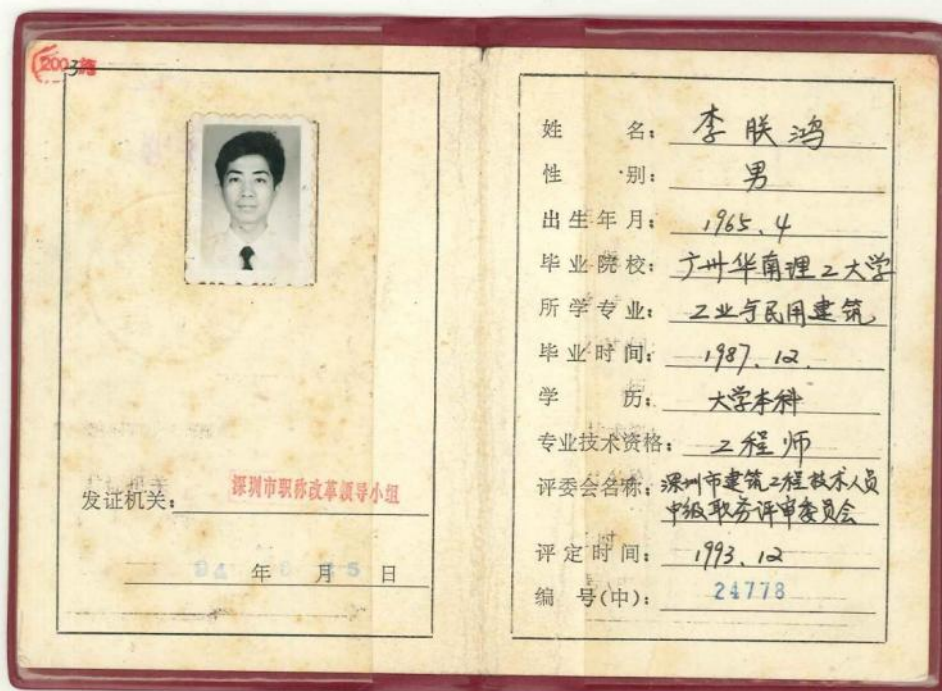 2003
发证机关：深圳市职称改革领导小组
94 年 月 5 日
姓 名：李朕鸿
性 别：男
出生年月：1965.4
毕业院校：广州华南理工大学
所学专业：工业与民用建筑
毕业时间：1987.12.
学 历：大学本科
专业技术资格：工程师
评委会名称：深圳市建筑工程技术人员
中级职务评审委员会
评定时间：1993.12
编 号(中)：24778